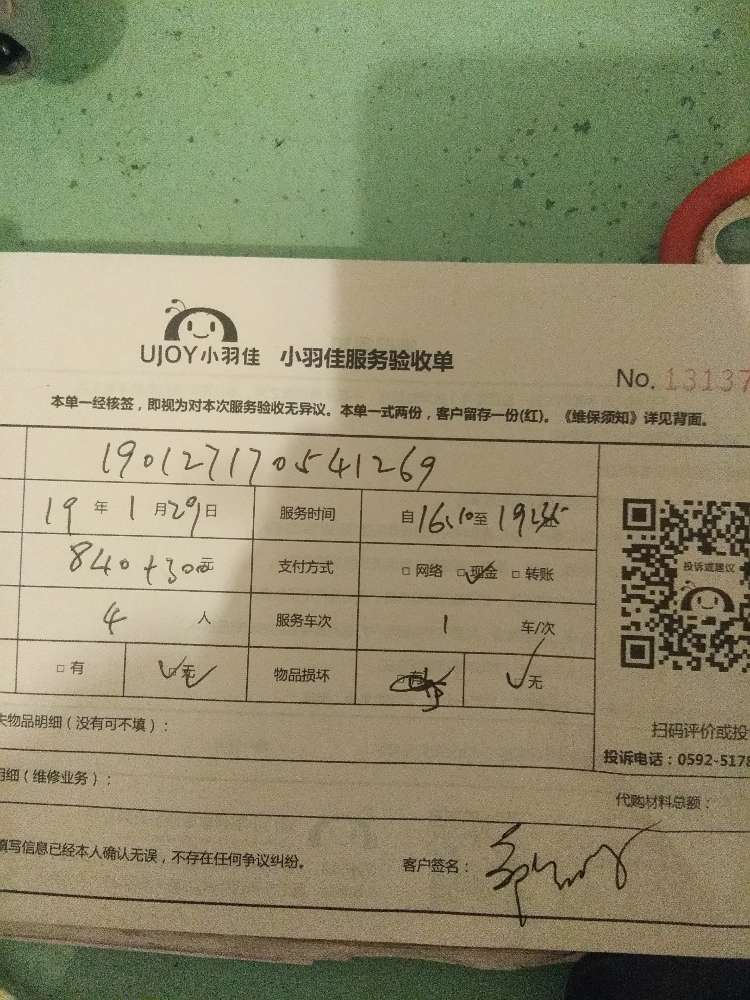 UJOY小羽佳 小羽佳服务验收单
No. 13137
本单一经核签，即视为对本次服务验收无异议。本单一式两份，客户留存一份(红)。《维保须知》详见背面。
190127170541269
19 年 1 月 29 日 服务时间 自 16:10 至 19
840+300元 支付方式 □ 网络 □ 现金 □ 转账
投诉或建议
4 人 服务车次 1 车/次
□ 有 □ 无 物品损坏 □ 有 □ 无
失物品明细（没有可不填）：
扫码评价或投
投诉电话：0592-5178
明细（维修业务）：
代购材料总额：
填写信息已经本人确认无误，不存在任何争议纠纷。 客户签名：